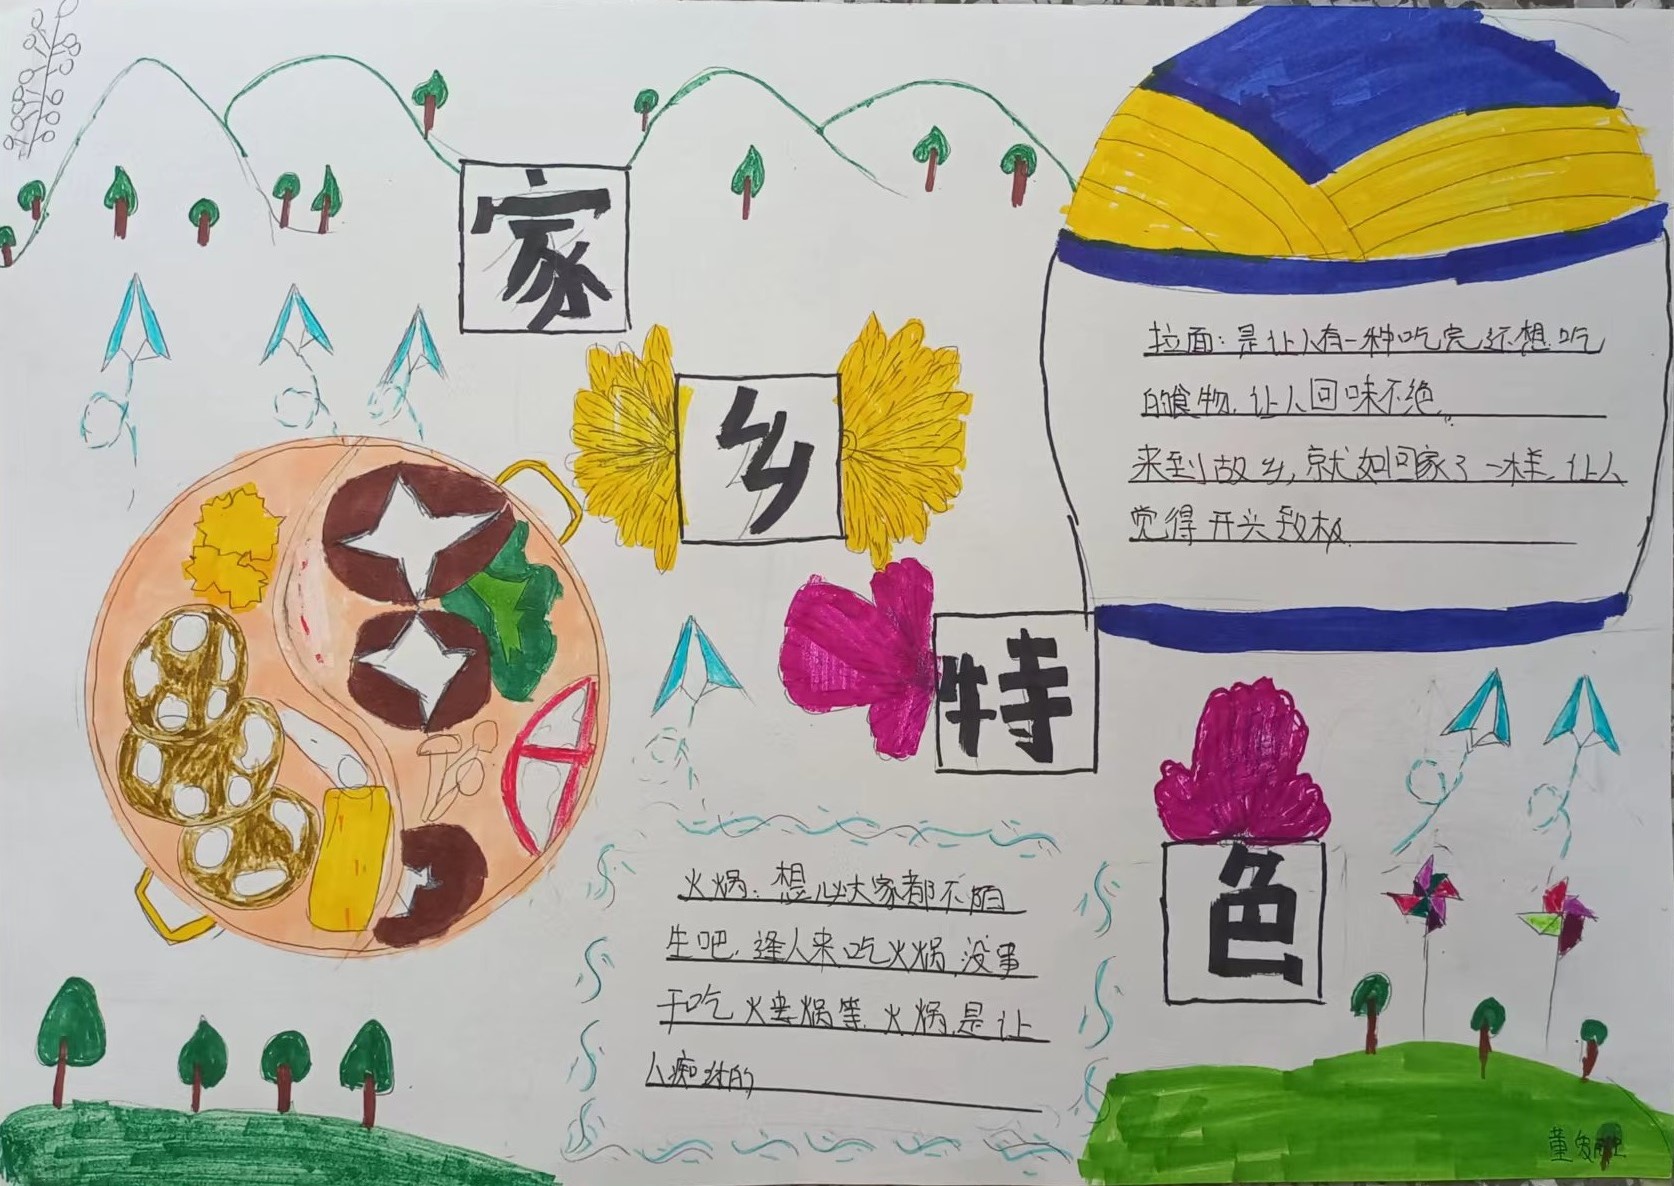 家
乡
特
色
拉面：是让人有一种吃完还想吃
的食物，让人回味不绝。
来到故乡，就如回家了一样，让人
觉得开兴致极
火锅：想必大家都不陌
生吧，逢人来吃火锅，没事
干吃火锅等，火锅是让
人痴迷的
董